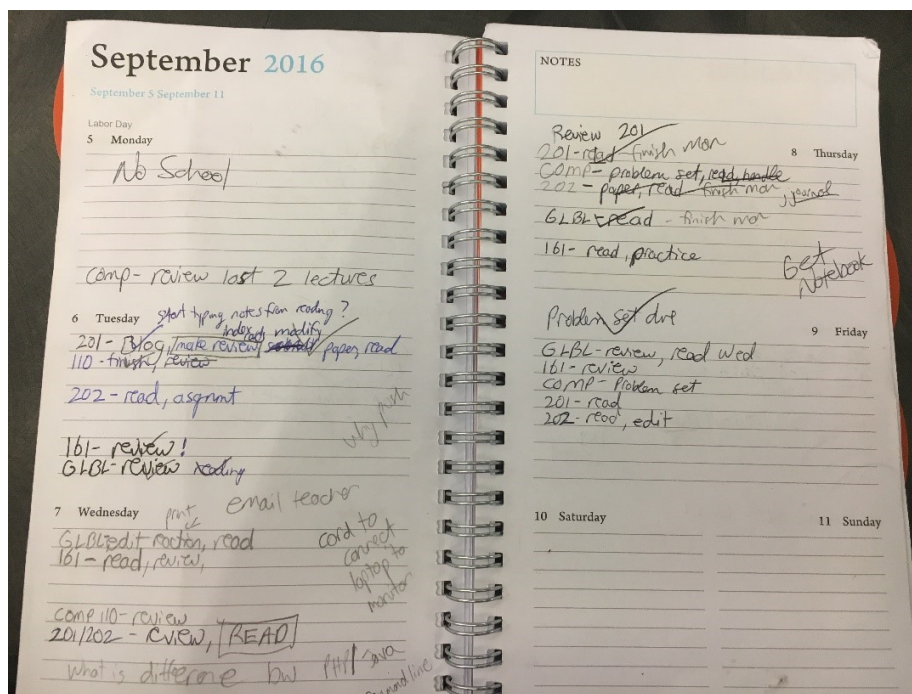 September 2016
September 5 September 11
Labor Day
5 Monday
No School
Comp- review last 2 lectures
6 Tuesday
start typing notes from reading?
index cards modify
201- Blog, make review, paper, read
110- finish, review
202- read, asgnmt
why push
161- review!
GLBL- review reading
7 Wednesday
print
email teacher
GLBL- edit reaction, read
161- read, review,
cord to
connect
laptop to
monitor
comp 110- review
201/202- review, READ
what is difference bw PHP/Java
command line
NOTES
Review 201
8 Thursday
201- read finish mon
COMP- problem set, read, handle
202- paper, read finish mon
journal
GLBL- read - finish mon
161- read, practice
Get
Notebook
Problem set due
9 Friday
GLBL- review, read Wed
161- review
COMP- Problem set
201- read
202- read, edit
10 Saturday
11 Sunday